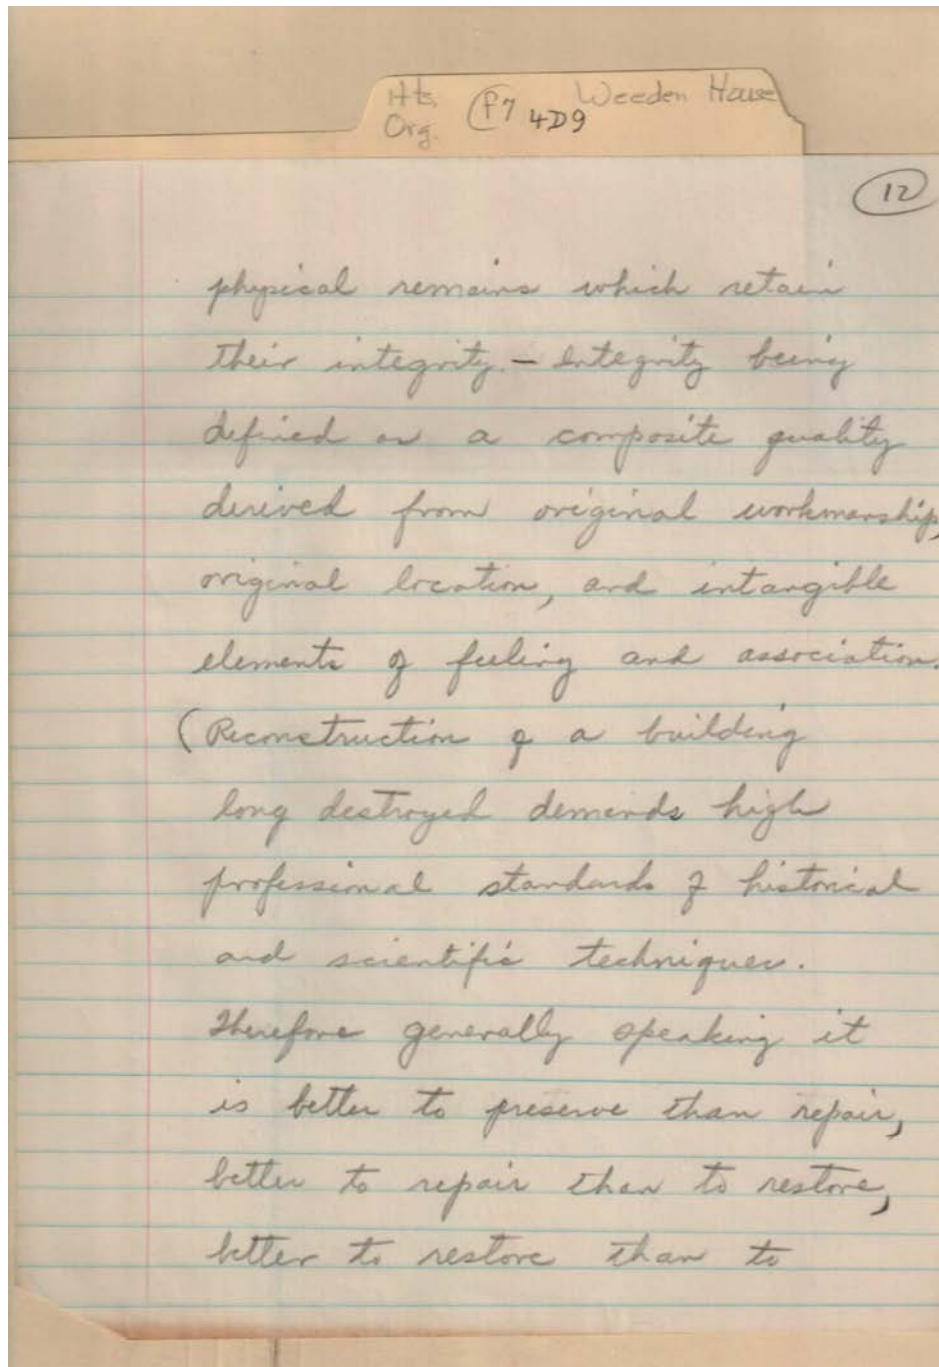 Hts. (F7 4D9 Weeden House
Org.
12
physical remains which retain
their integrity. – Integrity being
defined as a composite quality
derived from original workmanship,
original location, and intangible
elements of feeling and association.
(Reconstruction of a building
long destroyed demands high
professional standards of historical
and scientific techniques.
Therefore generally speaking it
is better to preserve than repair,
better to repair than to restore,
better to restore than to